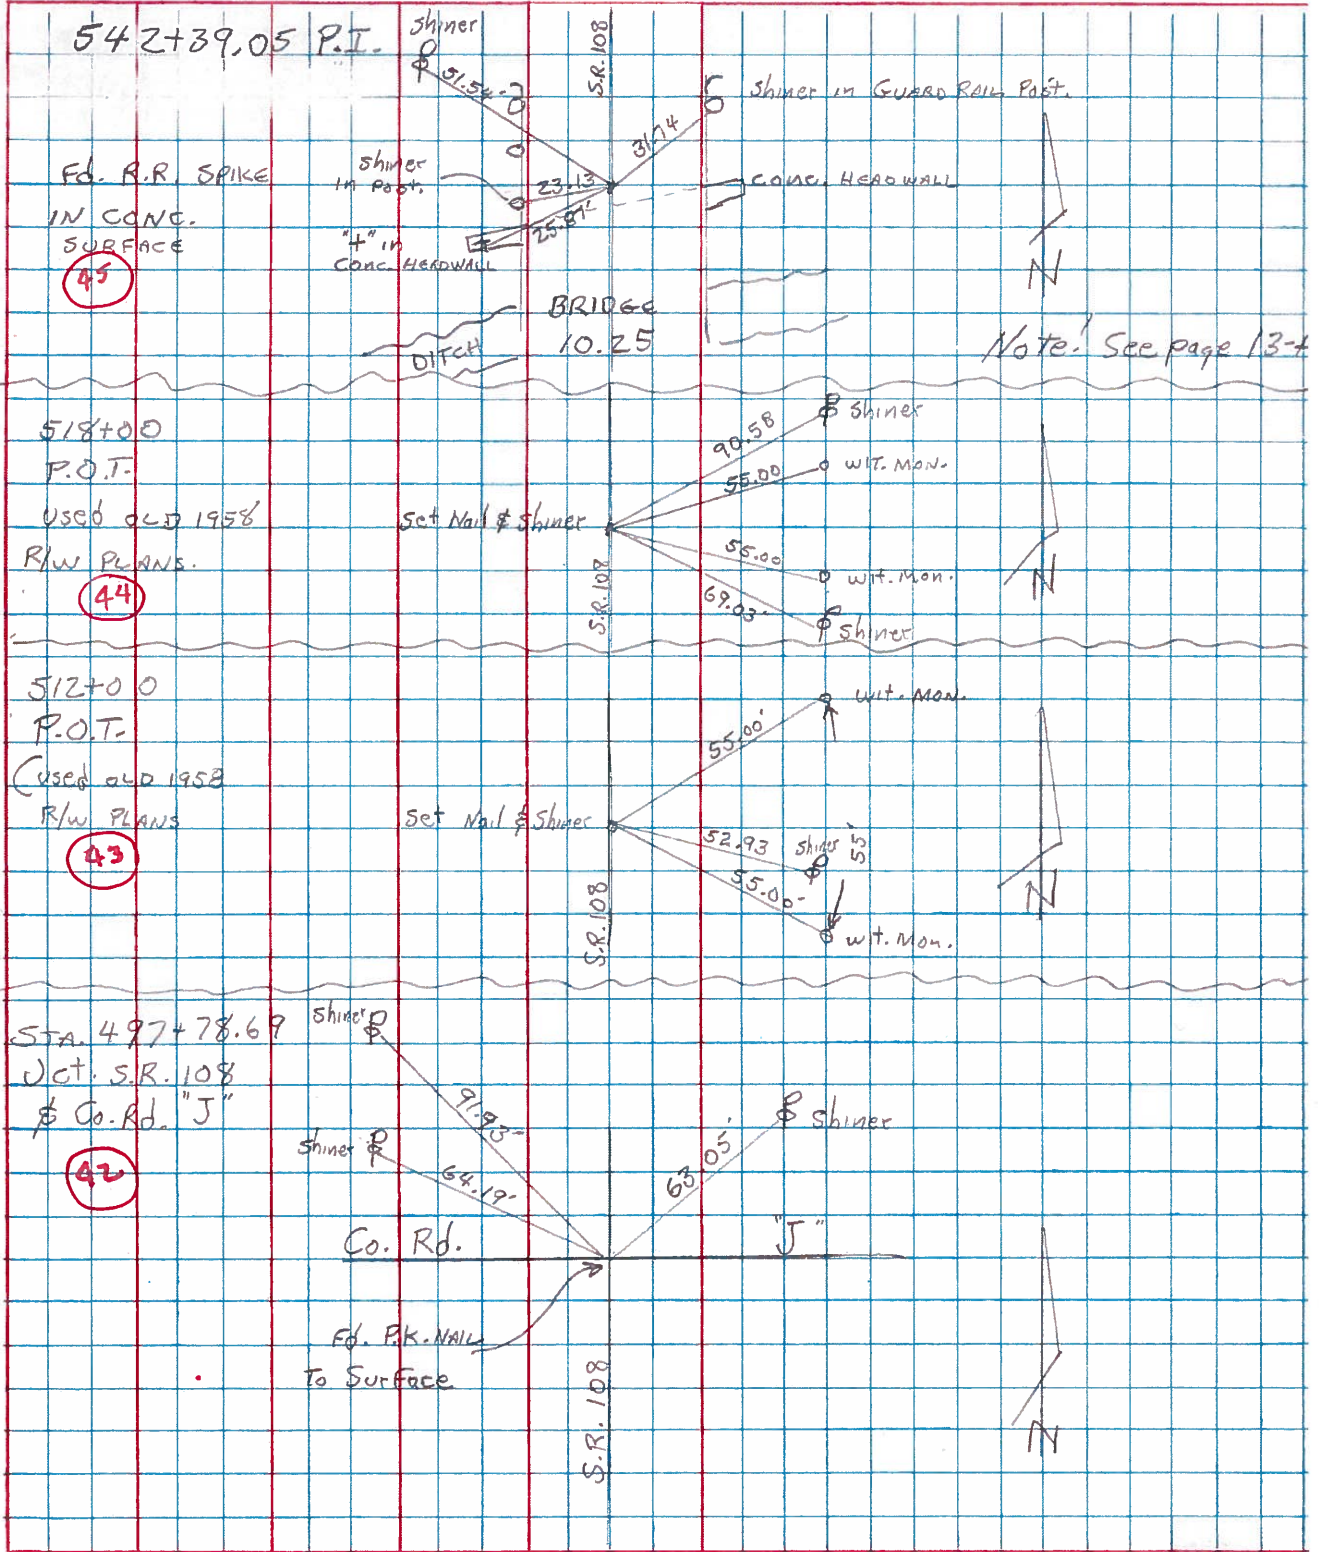 542+39.05 P.I.
Shiner
S.R. 108
51.54
Shiner in GUARD RAIL Post.
31.74
Fd. R.R. SPIKE
IN CONC.
SURFACE
45
Shiner
in Post.
23.13
CONC. HEADWALL
25.87'
"+" in
CONC. HEADWALL
N
BRIDGE
10.25
DITCH
Note! See page 13-
518+00
P.O.T.
Used OLD 1958
R/W PLANS.
44
Set Nail & Shiner
S.R. 108
90.58
Shiner
55.00
WIT. MON.
55.00
Wit. Mon.
69.03'
Shiner
N
512+00
P.O.T.
(used OLD 1958
R/W PLANS
43
Set Nail & Shiner
S.R. 108
55.00'
Wit. Mon.
52.93
Shiner
55'
55.00'
Wit. Mon.
N
STA. 497+78.69
Jct. S.R. 108
& Co. Rd. "J"
42
Shiner
91.93'
Shiner
64.19'
63.05'
Shiner
Co. Rd.
"J"
Fd. P.K. NAIL
To Surface
S.R. 108
N